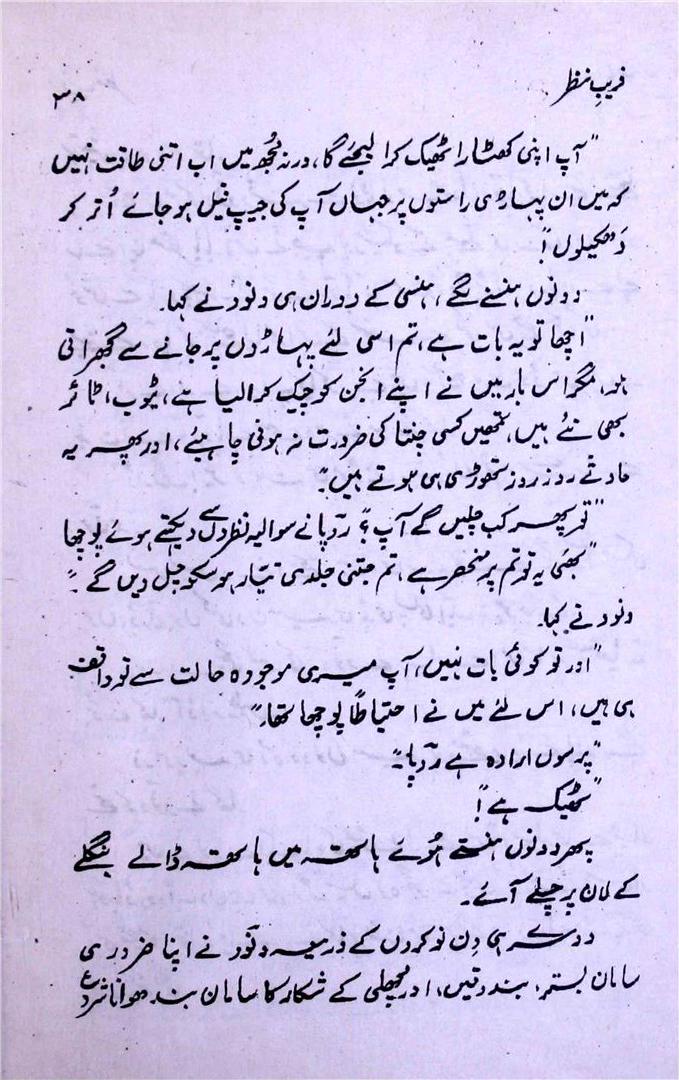 فریبِ نظر
۳۸
"آپ اپنی کھٹارا ٹھیک کرا لیجئے گا، ورنہ مُجھ میں اب اتنی طاقت نہیں
کہ میں ان پہاڑی راستوں پر جہاں آپ کی جیپ فیل ہو جائے اُتر کر
دھکیلوں!"
دونوں ہنسنے لگے، ہنسی کے دوران ہی ونود نے کہا۔
"اچھا تو یہ بات ہے، تم اسی لئے پہاڑوں پر جانے سے گھبراتی
ہو، مگر اس بار میں نے اپنے انجن کو چیک کرالیا ہے، ٹیوب، ٹائر
بھی نئے ہیں، تمھیں کسی چنتا کی ضرورت نہ ہونی چاہیئے، اور پھر یہ
حادثے روز روز تھوڑی ہی ہوتے ہیں"۔
"تو پھر کب چلیں گے آپ؟" روپا نے سوالیہ نظروں سے دیکھتے ہوئے پوچھا
"بھئی یہ تو تم پر منحصر ہے، تم جتنی جلدی تیار ہو سکو چل دیں گے"۔
ونود نے کہا۔
"اور تو کوئی بات نہیں، آپ میری موجودہ حالت سے تو واقف
ہی ہیں، اس لئے میں نے احتیاطاً پوچھا تھا۔"
"پرسوں ارادہ ہے روپا"۔
"ٹھیک ہے!"
پھر دونوں ہنستے ہُوئے ہاتھ میں ہاتھ ڈالے بنگلے
کے لان پر چلے آئے۔
دوسرے ہی دِن نوکروں کے ذریعہ ونود نے اپنا ضروری
سامان بستر، بندوقیں، اور مچھلی کے شکار کا سامان بندھوانا شروع